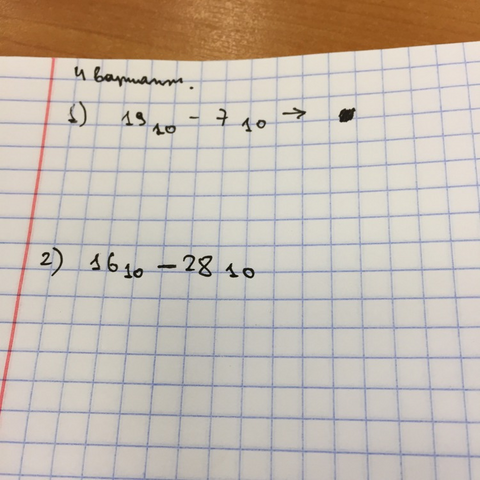 4 вариант.
1) 19₁₀ - 7₁₀ →
2) 16₁₀ - 28₁₀